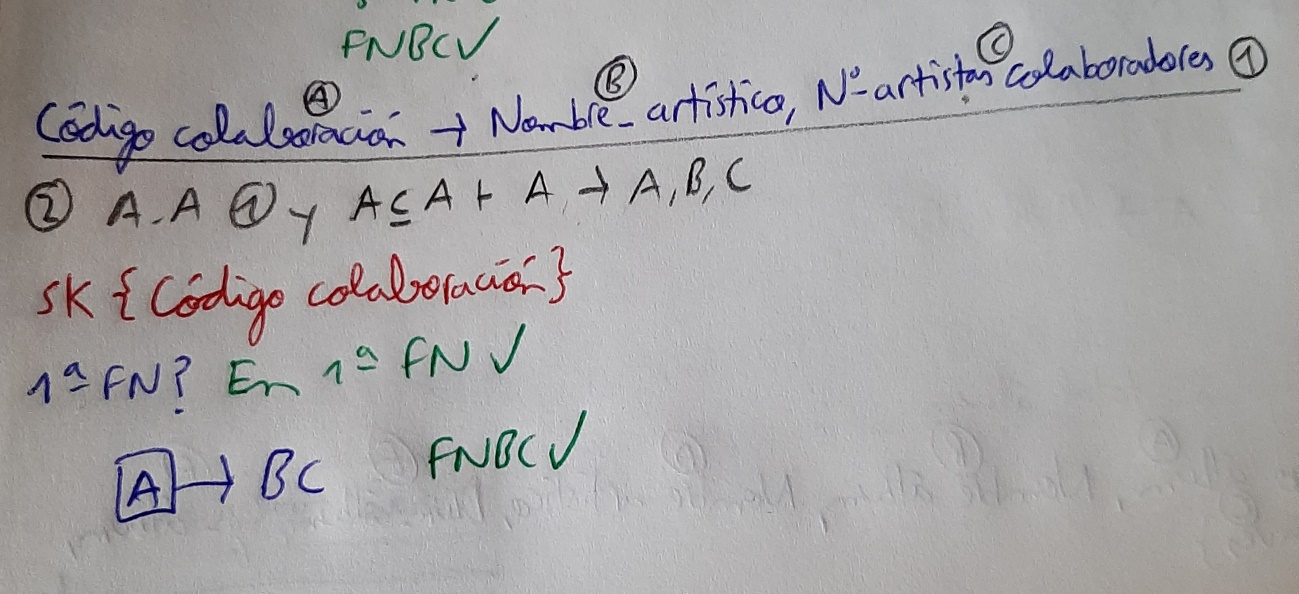 FNBC✓
Código colaboración Ⓐ → Nombre_artístico Ⓑ, Nº artistas colaboradores Ⓒ ①
② A.A ① y A⊆A ⊢ A → A,B,C
SK {Código colaboración}
1ª FN? En 1ª FN ✓
A → BC FNBC✓